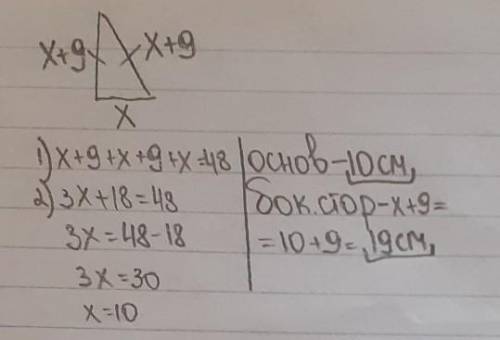 x+9 x+9
x
1) x+9+x+9+x=48
2) 3x+18=48
3x=48-18
3x=30
x=10
основ-10см,
бок.стор-x+9=
=10+9=19см,